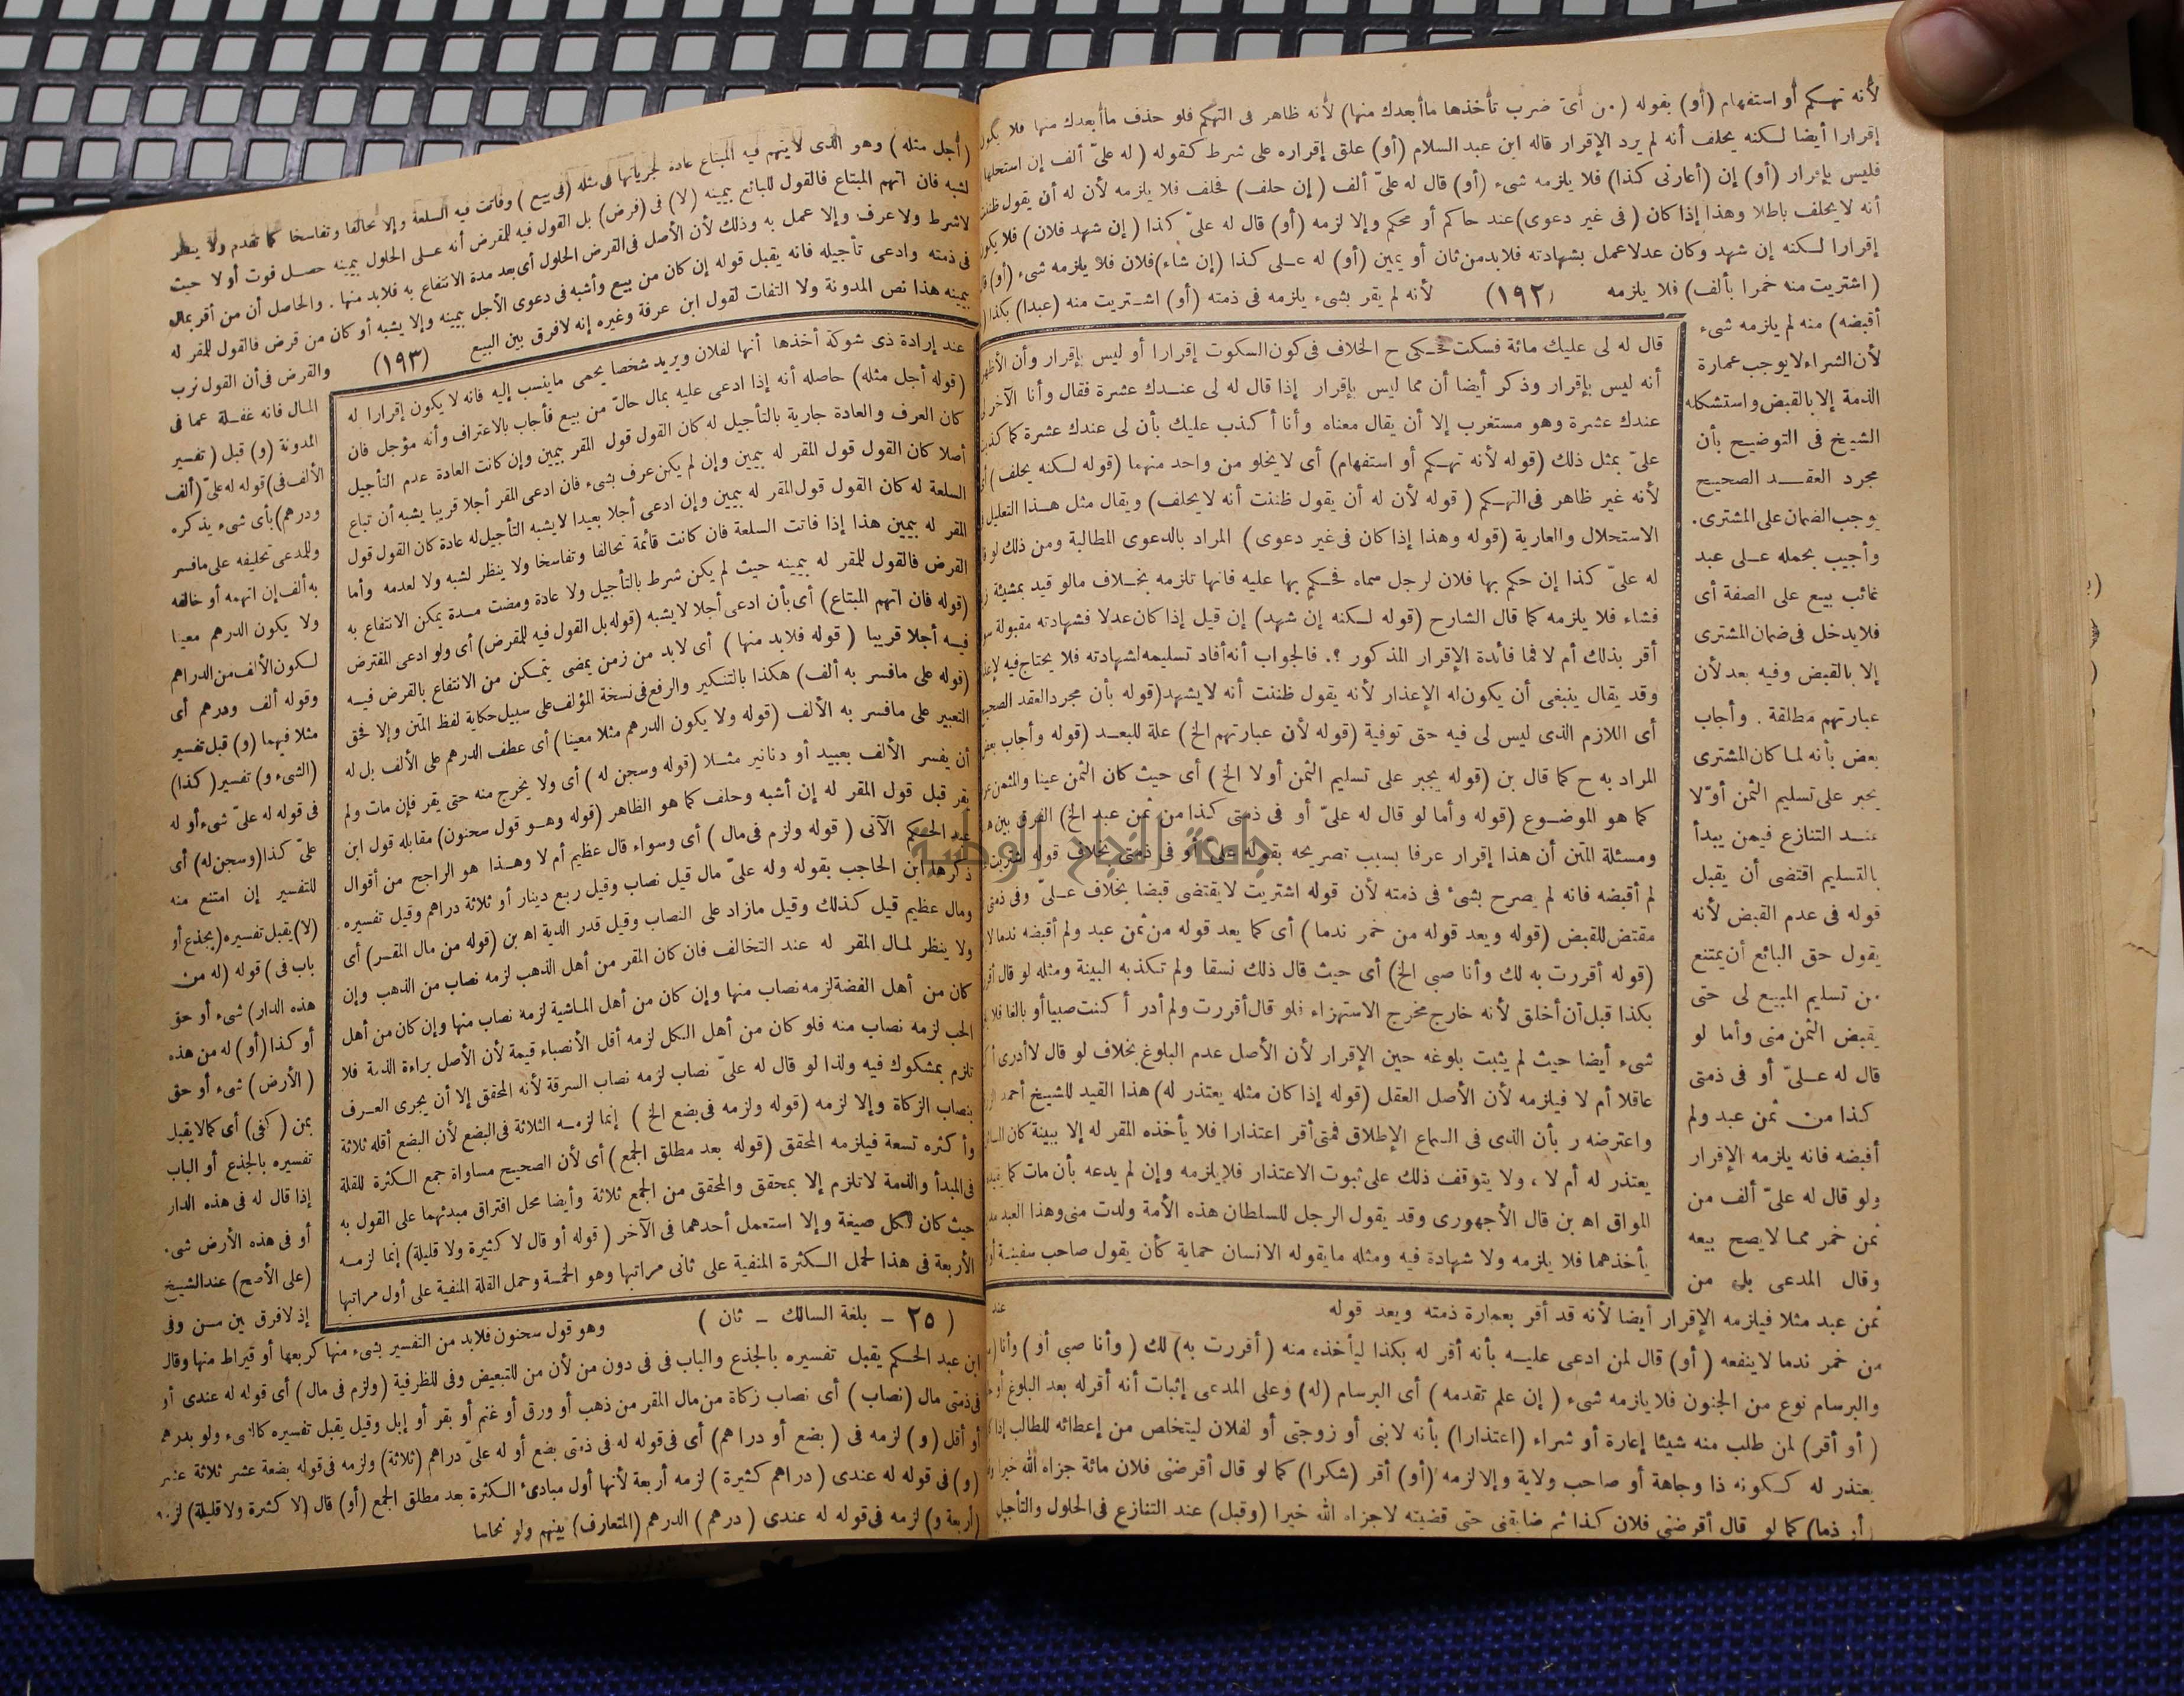 لأنه تهكم أو استفهام (أو) بقوله (من أىّ ضرب تأخذها ماأبعدك منها) لأنه ظاهر فى التهكم فلو حذف ماأبعدك منها فلا يكون
إقرارا أيضا لكنه يحلف أنه لم يرد الإقرار قاله ابن عبد السلام (أو) علق إقراره على شرط كقوله (له علىّ ألف إن استحلها
فليس بإقرار (أو) إن (أعارنى كذا) فلا يلزمه شىء (أو) قال له علىّ ألف (إن حلف) فحلف فلا يلزمه لأن له أن يقول ظننت
أنه لايحلف باطلا وهذا إذا كان (فى غير دعوى) عند حاكم أو محكم وإلا لزمه (أو) قال له علىّ كذا (إن شهد فلان) فلا
إقرارا لكنه إن شهد وكان عدلا عمل بشهادته فلابد من ثان أو يمين (أو) له على كذا (إن شاء) فلان فلا يلزمه شىء (أو)
(اشتريت منه خمرا بألف) فلا يلزمه (١٩٢) لأنه لم يقر بشىء يلزمه فى ذمته (أو) اشتريت منه (عبدا) بكذا
أقبضه) منه لم يلزمه شىء
لأن الشراء لايوجب عمارة
الذمة إلا بالقبض واستشكله
الشيخ فى التوضيح بأن
مجرد العقد الصحيح
يوجب الضمان على المشترى.
وأجيب بحمله على عبد
غائب بيع على الصفة أى
فلايدخل فى ضمان المشترى
إلا بالقبض وفيه بعد لأن
عبارتهم مطلقة . وأجاب
بعض بأنه لما كان المشترى
يجبر على تسليم الثمن أوّلا
عند التنازع فيمن يبدأ
بالتسليم اقتضى أن يقبل
قوله فى عدم القبض لأنه
يقول حق البائع أن يمتنع
من تسليم المبيع لى حتى
يقبض الثمن منى وأما لو
قال له علىّ أو فى ذمتى
كذا من ثمن عبد ولم
أقبضه فانه يلزمه الإقرار
ولو قال له علىّ ألف من
ثمن خمر مما لا يصح بيعه
وقال المدعى بل من
قال له لى عليك مائة فسكت فحكى ح الخلاف فى كون السكوت إقرارا أو ليس بإقرار وأن الأظهر
أنه ليس بإقرار وذكر أيضا أن مما ليس بإقرار إذا قال له لى عندك عشرة فقال وأنا الآخر
عندك عشرة وهو مستغرب إلا أن يقال معناه وأنا أكذب عليك بأن لى عندك عشرة كما كذبت
علىّ بمثل ذلك (قوله لأنه تهكم أو استفهام) أى لايخلو من واحد منهما (قوله لكنه يحلف)
لأنه غير ظاهر فى التهكم (قوله لأن له أن يقول ظننت أنه لايحلف) ويقال مثل هذا التعليل
الاستحلال والعارية (قوله وهذا إذا كان فى غير دعوى) المراد بالدعوى المطالبة ومن ذلك لو
له علىّ كذا إن حكم بها فلان لرجل سماه فحكم بها عليه فانها تلزمه بخلاف مالو قيد بمشيئة
فشاء فلا يلزمه كما قال الشارح (قوله لكنه إن شهد) إن قيل إذا كان عدلا فشهادته مقبولة
أقر بذلك أم لا فما فائدة الإقرار المذكور ؟. فالجواب أنه أفاد تسليمه لشهادته فلا يحتاج فيه
وقد يقال ينبغى أن يكون له الإعذار لأنه يقول ظننت أنه لايشهد (قوله بأن مجرد العقد الصحيح
أى اللازم الذى ليس لى فيه حق توفية (قوله لأن عبارتهم الخ) علة للبعد (قوله وأجاب بعض
المراد به ح كما قال بن (قوله يجبر على تسليم الثمن أولا الخ) أى حيث كان الثمن عينا والمثمن
كما هو الموضوع (قوله وأما لو قال له علىّ أو فى ذمتى كذا من ثمن عبد الخ) الفرق بين
ومسئلة المتن أن هذا إقرار عرفا بسبب تصريحه بقوله على أو فى ذمتى بخلاف قوله اشتريت
لم أقبضه فانه لم يصرح بشىء فى ذمته لأن قوله اشتريت لايقتضى قبضا بخلاف علىّ وفى ذمتى
مقتض للقبض (قوله ويعد قوله من خمر ندما) أى كما يعد قوله من ثمن عبد ولم أقبضه ندما
(قوله أقررت به لك وأنا صبى الخ) أى حيث قال ذلك نسقا ولم تكذبه البينة ومثله لو قال
بكذا قبل أن أخلق لأنه خارج مخرج الاستهزاء فلو قال أقررت ولم أدر أكنت صبيا أو بالغا
شىء أيضا حيث لم يثبت بلوغه حين الإقرار لأن الأصل عدم البلوغ بخلاف لو قال لاأدرى
عاقلا أم لا فيلزمه لأن الأصل العقل (قوله إذا كان مثله يعتذر له) هذا القيد للشيخ أحمد
واعترضه ر بأن الذى فى السماع الإطلاق فمتى أقر اعتذارا فلا يأخذه المقر له إلا ببينة كان
يعتذر له أم لا ، ولا يتوقف ذلك على ثبوت الاعتذار فلايلزمه وإن لم يدعه بأن مات كما
المواق اه بن قال الأجهورى وقد يقول الرجل للسلطان هذه الأمة ولدت منى وهذا العبد
يأخذهما فلا يلزمه ولا شهادة فيه ومثله مايقوله الانسان حماية كأن يقول صاحب سفينة
عند
ثمن عبد مثلا فيلزمه الإقرار أيضا لأنه قد أقر بعمارة ذمته ويعد قوله
من خمر ندما لاينفعه (أو) قال لمن ادعى عليه بأنه أقر له بكذا ليأخذه منه (أقررت به) لك (وأنا صبى أو) وأنا
والبرسام نوع من الجنون فلايلزمه شىء (إن علم تقدمه) أى البرسام (له) وعلى المدعى إثبات أنه أقر له بعد البلوغ
(أو أقر) لمن طلب منه شيئا إعارة أو شراء (اعتذارا) بأنه لابنى أو زوجتى أو لفلان ليتخلص من إعطائه للطالب
يعتذر له ككونه ذا وجاهة أو صاحب ولاية وإلا لزمه (أو) أقر (شكرا) كما لو قال أقرضنى فلان مائة جزاه الله خيرا
(أو ذما) كما لو قال أقرضنى فلان كذا ثم ضايقنى حتى قضيته لاجزاه الله خيرا (وقبل) عند التنازع فى الحلول والتأجيل
(أجل مثله) وهو الذى لايتهم فيه المبتاع عادة لجريانها فى مثله (فى بيع) وفاتت فيه السلعة وإلا تحالفا وتفاسخا كما تقدم ولا ينظر
لشبه فان اتهم المبتاع فالقول للبائع بيمينه (لا) فى (قرض) بل القول فيه للمقرض أنه على الحلول بيمينه حصل فوت أولا حيث
لاشرط ولا عرف وإلا عمل به وذلك لأن الأصل فى القرض الحلول أى بعد مدة الانتفاع به فلابد منها . والحاصل أن من أقر بمال
فى ذمته وادعى تأجيله فانه يقبل قوله إن كان من بيع وأشبه فى دعوى الأجل بيمينه وإلا يشبه أو كان من قرض فالقول للمقر له
بيمينه هذا نص المدونة ولا التفات لقول ابن عرفة وغيره إنه لافرق بين البيع (١٩٣) والقرض فى أن القول قرب
المال فانه غفلة عما فى
المدونة (و) قبل (تفسير
الألف فى) قوله له علىّ (ألف
ودرهم) بأى شىء يذكره
وللمدعى تحليفه على مافسر
به ألف إن اتهمه أو خالفه
ولا يكون الدرهم معينا
لكون الألف من الدراهم
وقوله ألف ودرهم أى
مثلا فيهما (و) قبل تفسير
(الشىء و) تفسير (كذا)
فى قوله له علىّ شىء أو له
علىّ كذا (وسجن له) أى
للتفسير إن امتنع منه
(لا) يقبل تفسيره (بجذع أو
باب فى) قوله (له من
هذه الدار) شىء أو حق
أو كذا (أو) له من هذه
(الأرض) شىء أو حق
بمن (كفى) أى كما لا يقبل
تفسيره بالجذع أو الباب
إذا قال له فى هذه الدار
أو فى هذه الأرض شىء
(على الأصح) عند الشيخ
إذ لافرق بين من وفى
عند إرادة ذى شوكة أخذها أنها لفلان ويريد شخصا يحمى ماينسب إليه فانه لايكون إقرارا له
(قوله أجل مثله) حاصله أنه إذا ادعى عليه بمال حالّ من بيع فأجاب بالاعتراف وأنه مؤجل فان
كان العرف والعادة جارية بالتأجيل له كان القول قول المقر بيمين وإن كانت العادة عدم التأجيل
أصلا كان القول قول المقر له بيمين وإن لم يكن عرف بشىء فان ادعى المقر أجلا قريبا يشبه أن تباع
السلعة له كان القول قول المقر له بيمين وإن ادعى أجلا بعيدا لايشبه التأجيل له عادة كان القول قول
المقر له بيمين هذا إذا فاتت السلعة فان كانت قائمة تحالفا وتفاسخا ولا ينظر لشبه ولا لعدمه وأما
القرض فالقول للمقر له بيمينه حيث لم يكن شرط بالتأجيل ولا عادة ومضت مدة يمكن الانتفاع به
(قوله فان اتهم المبتاع) أى بأن ادعى أجلا لايشبه (قوله بل القول فيه للمقرض) أى ولو ادعى المقترض
فيه أجلا قريبا (قوله فلابد منها) أى لابد من زمن يمضى يتمكن من الانتفاع بالقرض فيه
(قوله على مافسر به ألف) هكذا بالتنكير والرفع فى نسخة المؤلف على سبيل حكاية لفظ المتن وإلا فحق
التعبير على مافسر به الألف (قوله ولا يكون الدرهم مثلا معينا) أى عطف الدرهم على الألف بل له
أن يفسر الألف بعبيد أو دنانير مثلا (قوله وسجن له) أى ولا يخرج منه حتى يقر فإن مات ولم
يقر قبل قول المقر له إن أشبه وحلف كما هو الظاهر (قوله وهو قول سحنون) مقابله قول ابن
عبد الحكم الآتى (قوله ولزم فى مال) أى وسواء قال عظيم أم لا وهذا هو الراجح من أقوال
ذكرها ابن الحاجب بقوله وله علىّ مال قيل نصاب وقيل ربع دينار أو ثلاثة دراهم وقيل تفسيره
ومال عظيم قيل كذلك وقيل مازاد على النصاب وقيل قدر الدية اه بن (قوله من مال المقر) أى
ولا ينظر لمال المقر له عند التخالف فان كان المقر من أهل الذهب لزمه نصاب من الذهب وإن
كان من أهل الفضة لزمه نصاب منها وإن كان من أهل الماشية لزمه نصاب منها وإن كان من أهل
الحب لزمه نصاب منه فلو كان من أهل الكل لزمه أقل الأنصباء قيمة لأن الأصل براءة الذمة فلا
تلزم بمشكوك فيه ولذا لو قال له علىّ نصاب لزمه نصاب السرقة لأنه المحقق إلا أن يجرى العرف
بنصاب الزكاة وإلا لزمه (قوله ولزمه فى بضع الخ) إنما لزمه الثلاثة فى البضع لأن البضع أقله ثلاثة
وأكثره تسعة فيلزمه المحقق (قوله بعد مطلق الجمع) أى لأن الصحيح مساواة جمع الكثرة للقلة
فى المبدأ والذمة لاتلزم إلا بمحقق والمحقق من الجمع ثلاثة وأيضا محل افتراق مبدئهما على القول به
حيث كان لكل صيغة وإلا استعمل أحدهما فى الآخر (قوله أو قال لا كثيرة ولا قليلة) إنما لزمه
الأربعة فى هذا لحمل الكثرة المنفية على ثانى مراتبها وهو الخمسة وحمل القلة المنفية على أول مراتبها
(٢٥ - بلغة السالك - ثان)
وهو قول سحنون فلابد من التفسير بشىء منها كربعها أو قيراط منها وقال
ابن عبد الحكم يقبل تفسيره بالجذع والباب فى فى دون من لأن من للتبعيض وفى للظرفية (ولزم فى مال) أى قوله له عندى أو
فى ذمتى مال (نصاب) أى نصاب زكاة من مال المقر من ذهب أو ورق أو غنم أو بقر أو إبل وقيل يقبل تفسيره كالشىء ولو بدرهم
أو أقل (و) لزمه فى (بضع أو دراهم) أى فى قوله له فى ذمتى بضع أو له علىّ دراهم (ثلاثة) ولزمه فى قوله بضعة عشر ثلاثة عشر
(و) فى قوله له عندى (دراهم كثيرة) لزمه أربعة لأنها أول مبادئ الكثرة بعد مطلق الجمع (أو) قال (لا كثيرة ولا قليلة) لزمه
(أربعة و) لزمه فى قوله له عندى (درهم) الدرهم (المتعارف) بينهم ولو نحاسا
جامعة النجاح الوطنية